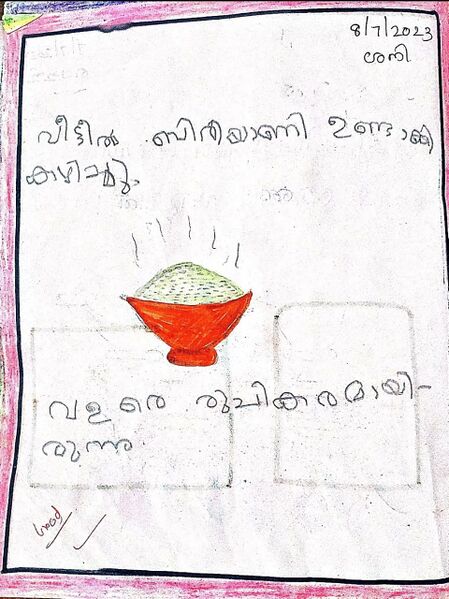 8/7/2023
ശനി
വീട്ടിൽ ബിരിയാണി ഉണ്ടാക്കി
കഴിച്ചു.
വളരെ രുചികരമായി-
രുന്നു